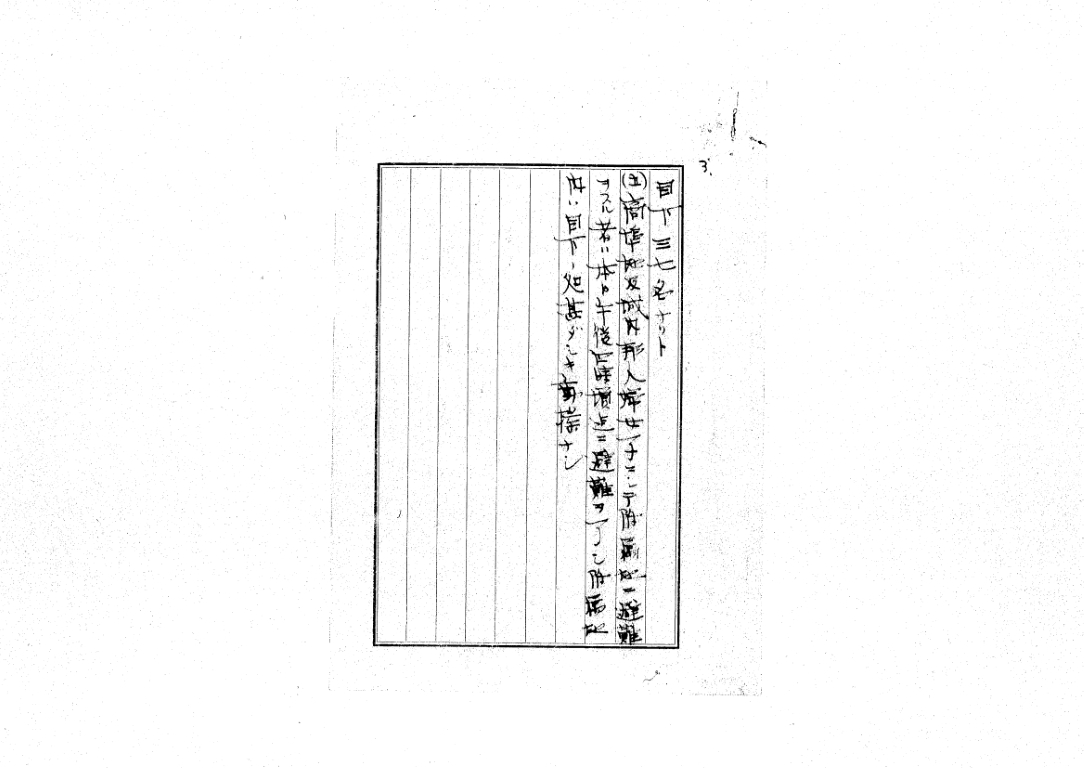 3.
目下三七名ナリト
(五)商埠地及城内邦人婦女子ニシテ附属地ニ避難
ヲスル者ハ本日午後四時頃迄ニ避難ヲ了シ附属地
内ハ目下ノ処甚ダシキ動揺ナシ